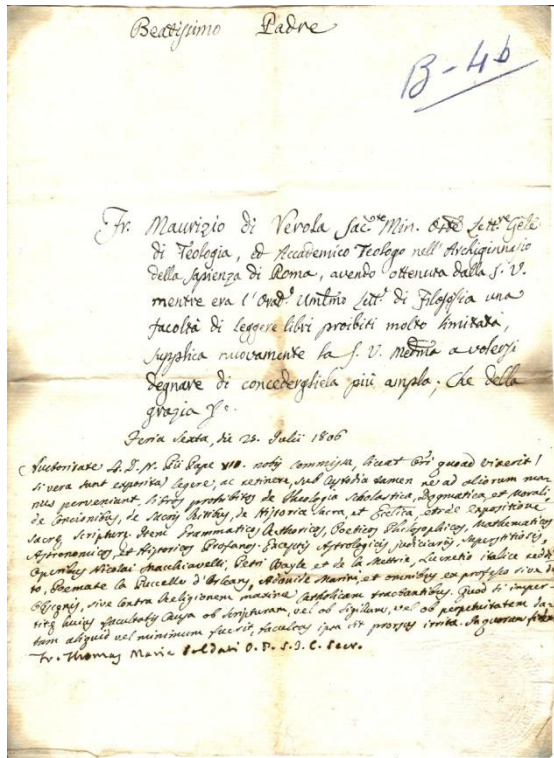 Beatissimo Padre
B-46
Fr. Maurizio di Verola Sac.ote Min. Lett.re Gãle
di Teologia, ed Accademico Teologo nell'Archiginnasio
della Sapienza di Roma, avendo ottenuta dalla S. V.
mentre era l'Orad.e Lett.e di Filosofia una
facoltà di leggere libri proibiti molto limitata,
supplica nuovamente la S. V. Medma a volersi
degnare di concedergliela più ampla; Che della
grazia
Feria Sexta, die 23. Julii 1806
Auctoritate S. D. N. Pii Pape VII. nobis commissa, liceat Ori quoad vixerit
si vera sunt exposita legere, ac retinere, sub Custodia tamen ne ad aliorum ma
nus perveniant, libros prohibitos de Theologia Scholastica, Dogmatica, et Morali,
de Concionibus, de Sacris Ritibus, de Historia Sacra, et de expositione
Sacre Scripture. Item Grammaticos, Poeticos Philosophicos, Mathematicos
Astronomicos, et Historicos Profanos. Exceptis Astrologicis judiciariis, Superstitiosis,
Operibus Nicolai Macchiavelli, Petri Bayle et de la Mettrie, Lucretio italice reddi
to, Poemate la Pucelle d'Orleans, Adonide Marini, et omnibus ex professo sive de
Obscenis, sive Contra Religionem maxime Catholicam tractantibus. Quod si imper
titis huius facultatis Causa ob Scripturam, vel ob Sigillum, vel ob perpetuitatem da
tum aliquid vel minimum fuerit, facultas ipsa sit prorsus irrita. In quorum fidem
Fr. Thomas Maria Soldati O. P. S. I. C. Secr.